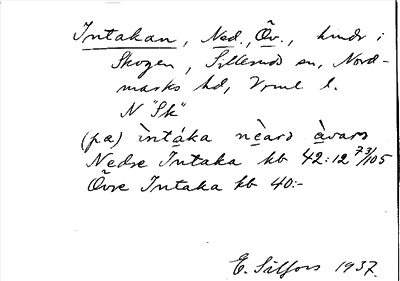 Intakan, Ned., Öv., hmdr i
Skogen, Sillerud sn, Nord-
marks hd, Vrml l.
N "Sk"
(pa) ìntáka nèard àvard
Nedre Intaka kb 42:12 73/105
Övre Intaka kb 40:-
E. Silfors 1937.